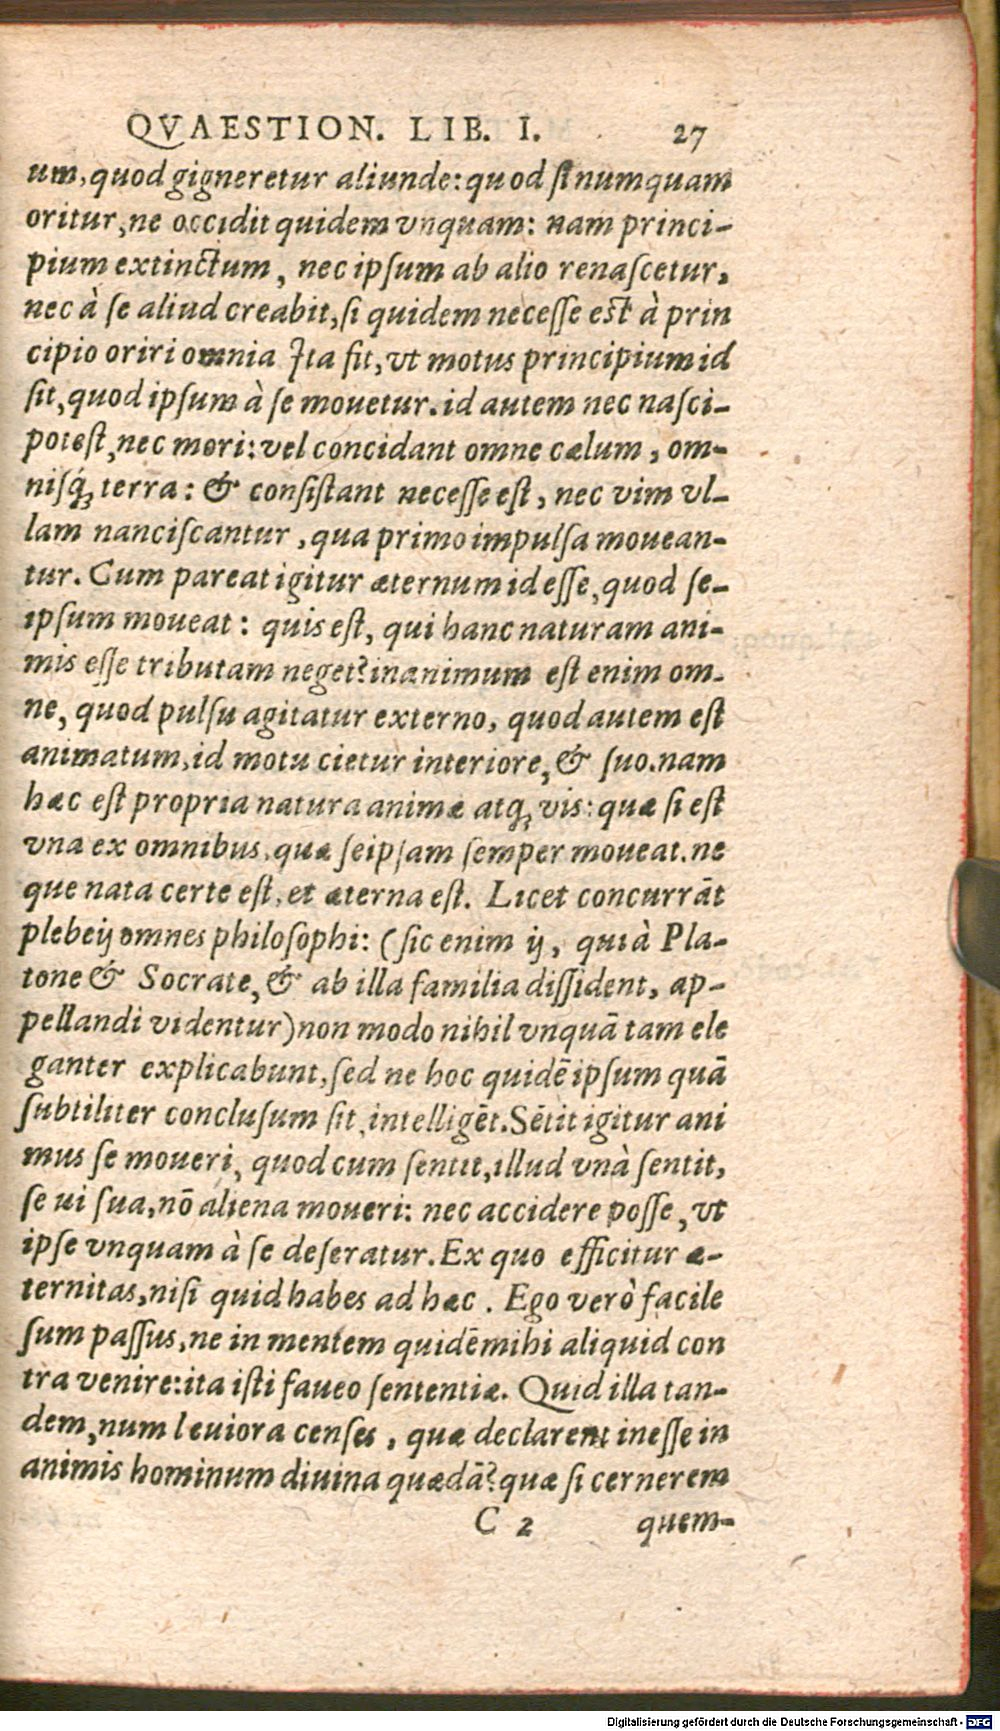 QVAESTION. LIB. I. 27
um, quod gigneretur aliunde: quod si numquam
oritur, ne occidit quidem vnquam: nam princi-
pium extinctum, nec ipsum ab alio renascetur,
nec à se aliud creabit, si quidem necesse est à prin
cipio oriri omnia Ita fit, vt motus principium id
sit, quod ipsum à se mouetur. id autem nec nasci-
potest, nec mori: vel concidant omne cælum, om-
nisq́; terra: & consistant necesse est, nec vim vl-
lam nanciscantur, qua primo impulsa mouean-
tur. Cum pareat igitur æternum id esse, quod se-
ipsum moueat: quis est, qui hanc naturam ani-
mis esse tributam neget? inanimum est enim om-
ne, quod pulsu agitatur externo, quod autem est
animatum, id motu cietur interiore, & suo. nam
hæc est propria natura animæ atq; vis: quæ si est
vna ex omnibus, quæ seipsam semper moueat. ne
que nata certe est, et æterna est. Licet concurrāt
plebeij omnes philosophi: (sic enim ij, qui à Pla-
tone & Socrate, & ab illa familia dissident, ap-
pellandi videntur) non modo nihil vnquā tam ele
ganter explicabunt, sed ne hoc quidē ipsum quā
subtiliter conclusum sit, intelligēt. Sētit igitur ani
mus se moueri, quod cum sentit, illud vnà sentit,
se ui sua, nō aliena moueri: nec accidere posse, vt
ipse vnquam à se deseratur. Ex quo efficitur æ-
ternitas, nisi quid habes ad hæc. Ego verò facile
sum passus, ne in mentem quidē mihi aliquid con
tra venire: ita isti faueo sententiæ. Quid illa tan-
dem, num leuiora censes, quæ declarent inesse in
animis hominum diuina quædā? quæ si cernerem
C 2 quem-
Digitalisierung gefördert durch die Deutsche Forschungsgemeinschaft - DFG